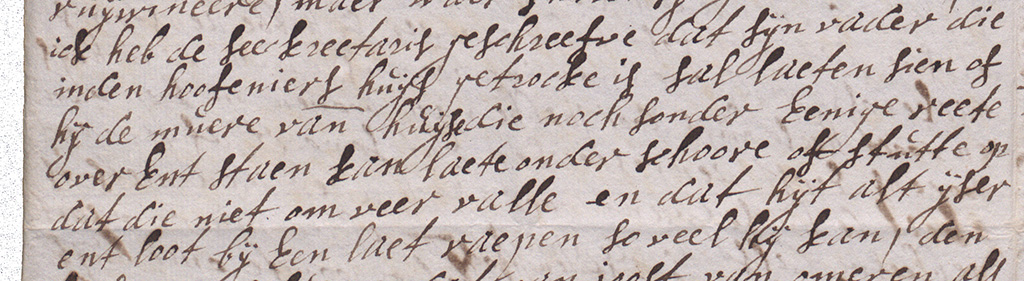 ruijwineere, maer
ick heb de seeckreetaris geschreefve dat sijn vader die
inden hoofeniers huijs getrocke is sal laeten sien of
hij de muere van huijse die noch sonder eenige reete
over ent staen kan laete onder schoore off stutte op
dat die niet om veer valle en dat hijt alt ijser
ent loot bij een laet raepen so veel hij kan, den
van omeren all